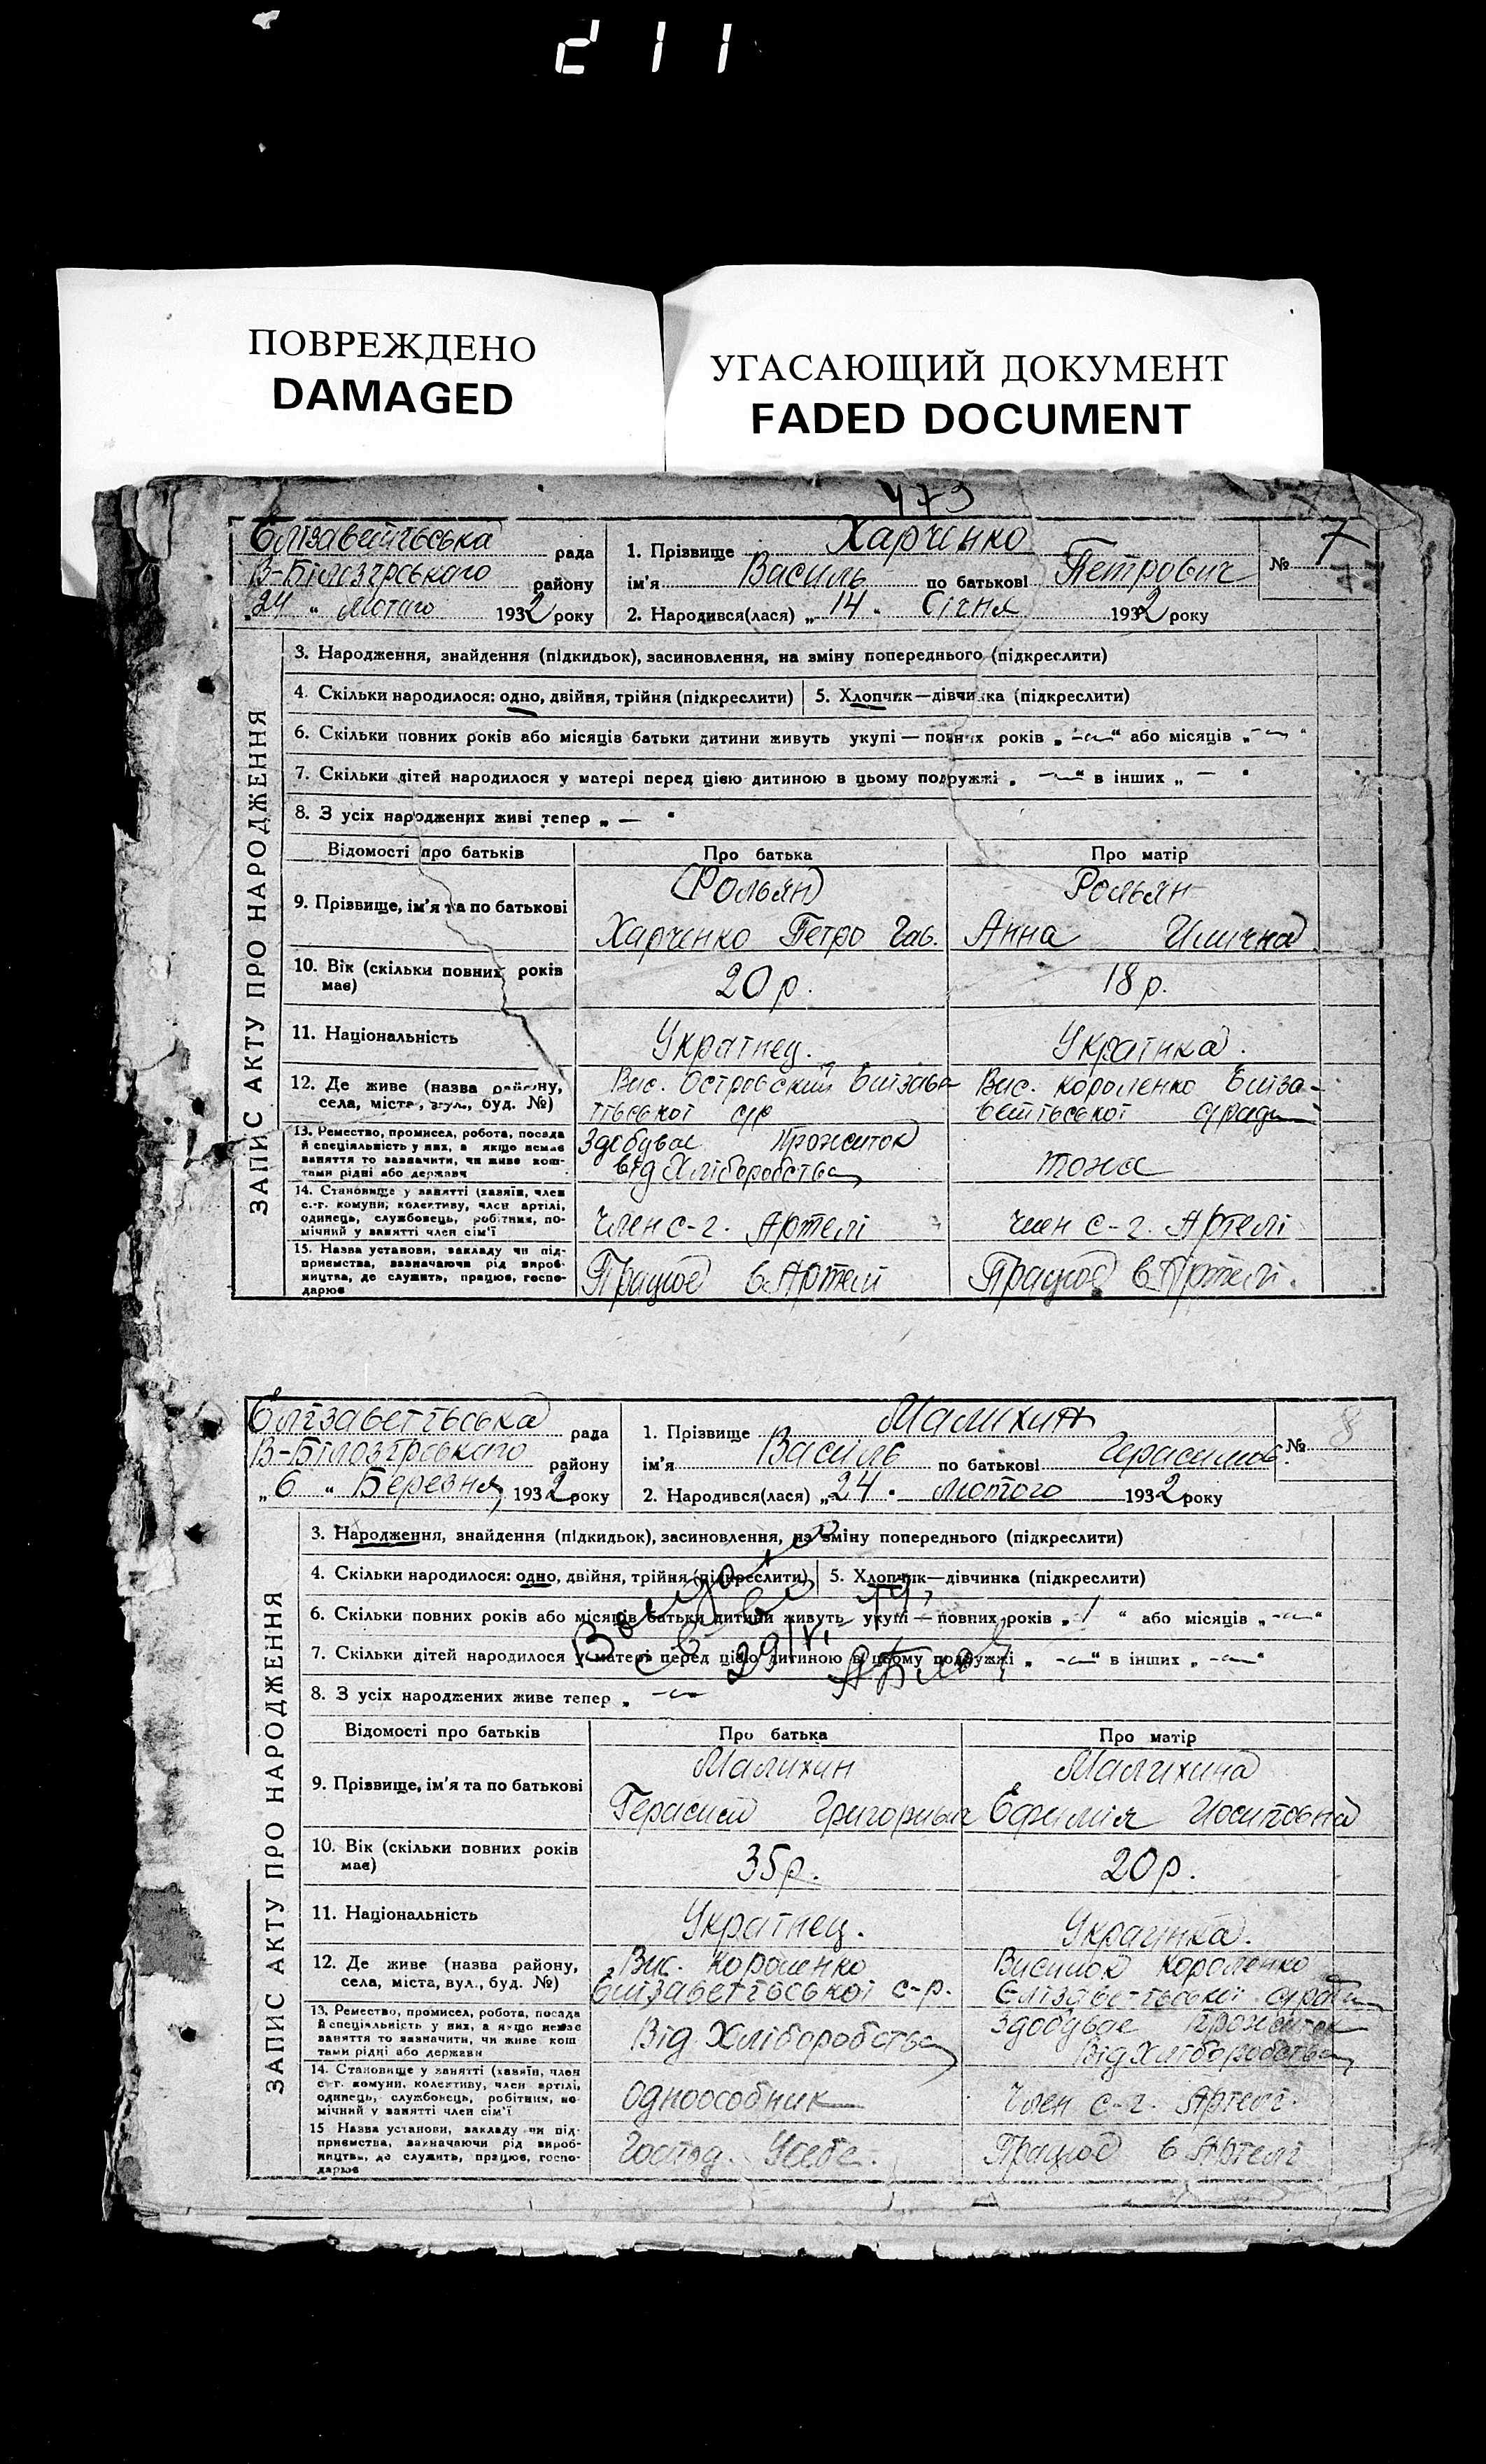 211
ПОВРЕЖДЕНО
DAMAGED
УГАСАЮЩИЙ ДОКУМЕНТ
FADED DOCUMENT
473
ЗАПИС АКТУ ПРО НАРОДЖЕННЯ
Єлізаветівська рада
В-Білозірського району
„24 “ Лютого 1932 року
1. Прізвище Харченко
ім'я Василь по батькові Петрович
2. Народився(лася) „14 “ Січня 1932 року
№ 7
3. Народження, знайдення (підкидьок), засиновлення, на зміну попереднього (підкреслити)
4. Скільки народилося: одно, двійня, трійня (підкреслити) 5. Хлопчик—дівчинка (підкреслити)
6. Скільки повних років або місяців батьки дитини живуть укупі — повних років „ — “ або місяців „ — “
7. Скільки дітей народилося у матері перед цією дитиною в цьому подружжі „ — “ в інших „ — “
8. З усіх народжених живі тепер „ — “
Відомості про батьків Про батька Про матір
9. Прізвище, ім'я та по батькові
(Рольян) Харченко Петро Гав.
Рольян Анна
10. Вік (скільки повних років має) 20 р. 18 р.
11. Національність Українец. Українка.
12. Де живе (назва району, села, міста, вул., буд. №)
Вис. Островский Єлізаве-
тівської с/р
Вис. Короленко Єліза-
ветівської с/ради
13. Ремество, промисел, робота, посада й спеціяльність у них, а якщо немає заняття то зазначити, чи живе коштами рідні або держави
Здобуває прожиток
від Хліборобства
тоже
14. Становище у занятті (хазяїн, член с.-г. комуни, колективу, член артілі, одинець, службовець, робітник, помічний у занятті член сім'ї
Член с-г. Артелі Член с-г. Артелі
15. Назва установи, закладу чи підприємства, зазначаючи рід виробництва, де служить, працює, господарює
Працює в Артелі Працює в Артелі.
ЗАПИС АКТУ ПРО НАРОДЖЕННЯ
Єлізаветівська рада
В-Білозірського району
„6 “ Березня 1932 року
1. Прізвище Малихин
ім'я Василь по батькові Герасимов.
2. Народився(лася) „24 “ Лютого 1932 року
№ 8
3. Народження, знайдення (підкидьок), засиновлення, на зміну попереднього (підкреслити)
4. Скільки народилося: одно, двійня, трійня (підкреслити) 5. Хлопчик—дівчинка (підкреслити)
6. Скільки повних років або місяців батьки дитини живуть укупі — повних років „ 1 “ або місяців „ — “
7. Скільки дітей народилося у матері перед цією дитиною в цьому подружжі „ — “ в інших „ — “
8. З усіх народжених живе тепер „ —
Відомості про батьків Про батька Про матір
9. Прізвище, ім'я та по батькові
Малихин
Герасим Григорович
Малихина
Єфимія Йосиповна
10. Вік (скільки повних років має) 35 р. 20 р.
11. Національність Українец. Українка.
12. Де живе (назва району, села, міста, вул., буд. №)
Вис. Короленко
Єлізаветівської с-р.
Висилок Короленко
Єлізаветівської с/ради
13. Ремество, промисел, робота, посада й спеціяльність у них, а якщо немає заняття то зазначити, чи живе коштами рідні або держави
Від Хліборобства
Здобуває прожиток
Від Хліборобства
14. Становище у занятті (хазяїн, член с-г. комуни, колективу, член артілі, одинець, службовець, робітник, помічний у занятті член сім'ї
Одноособник Член с-г. Артелі.
15 Назва установи, закладу чи підприємства, зазначаючи рід виробництва, де служить, працює, господарює
Господ. У себе. Працює в Артелі